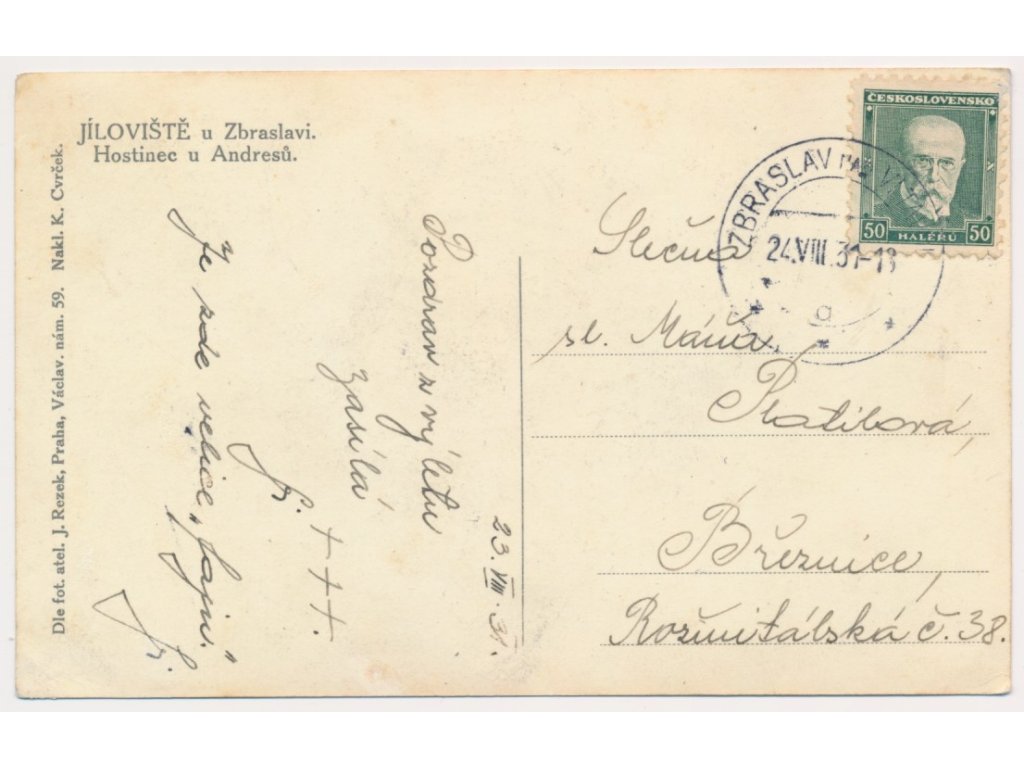 JÍLOVIŠTĚ u Zbraslavi.
Hostinec u Andresů.
Dle fot. atel. J. Rezek, Praha, Václav. nám. 59. Nakl. K. Cvrček.
23. VIII. 31.
Pozdrav z výletu
zasílá
Fr. +++.
Je zde velice „fajn."
Fr.
ČESKOSLOVENSKO
50 HALÉŘŮ 50
ZBRASLAV NAD VLT
24.VIII.31-18
a
Slečna
sl. Máňa
Platilová,
Březnice,
Rožmitálská č. 38.